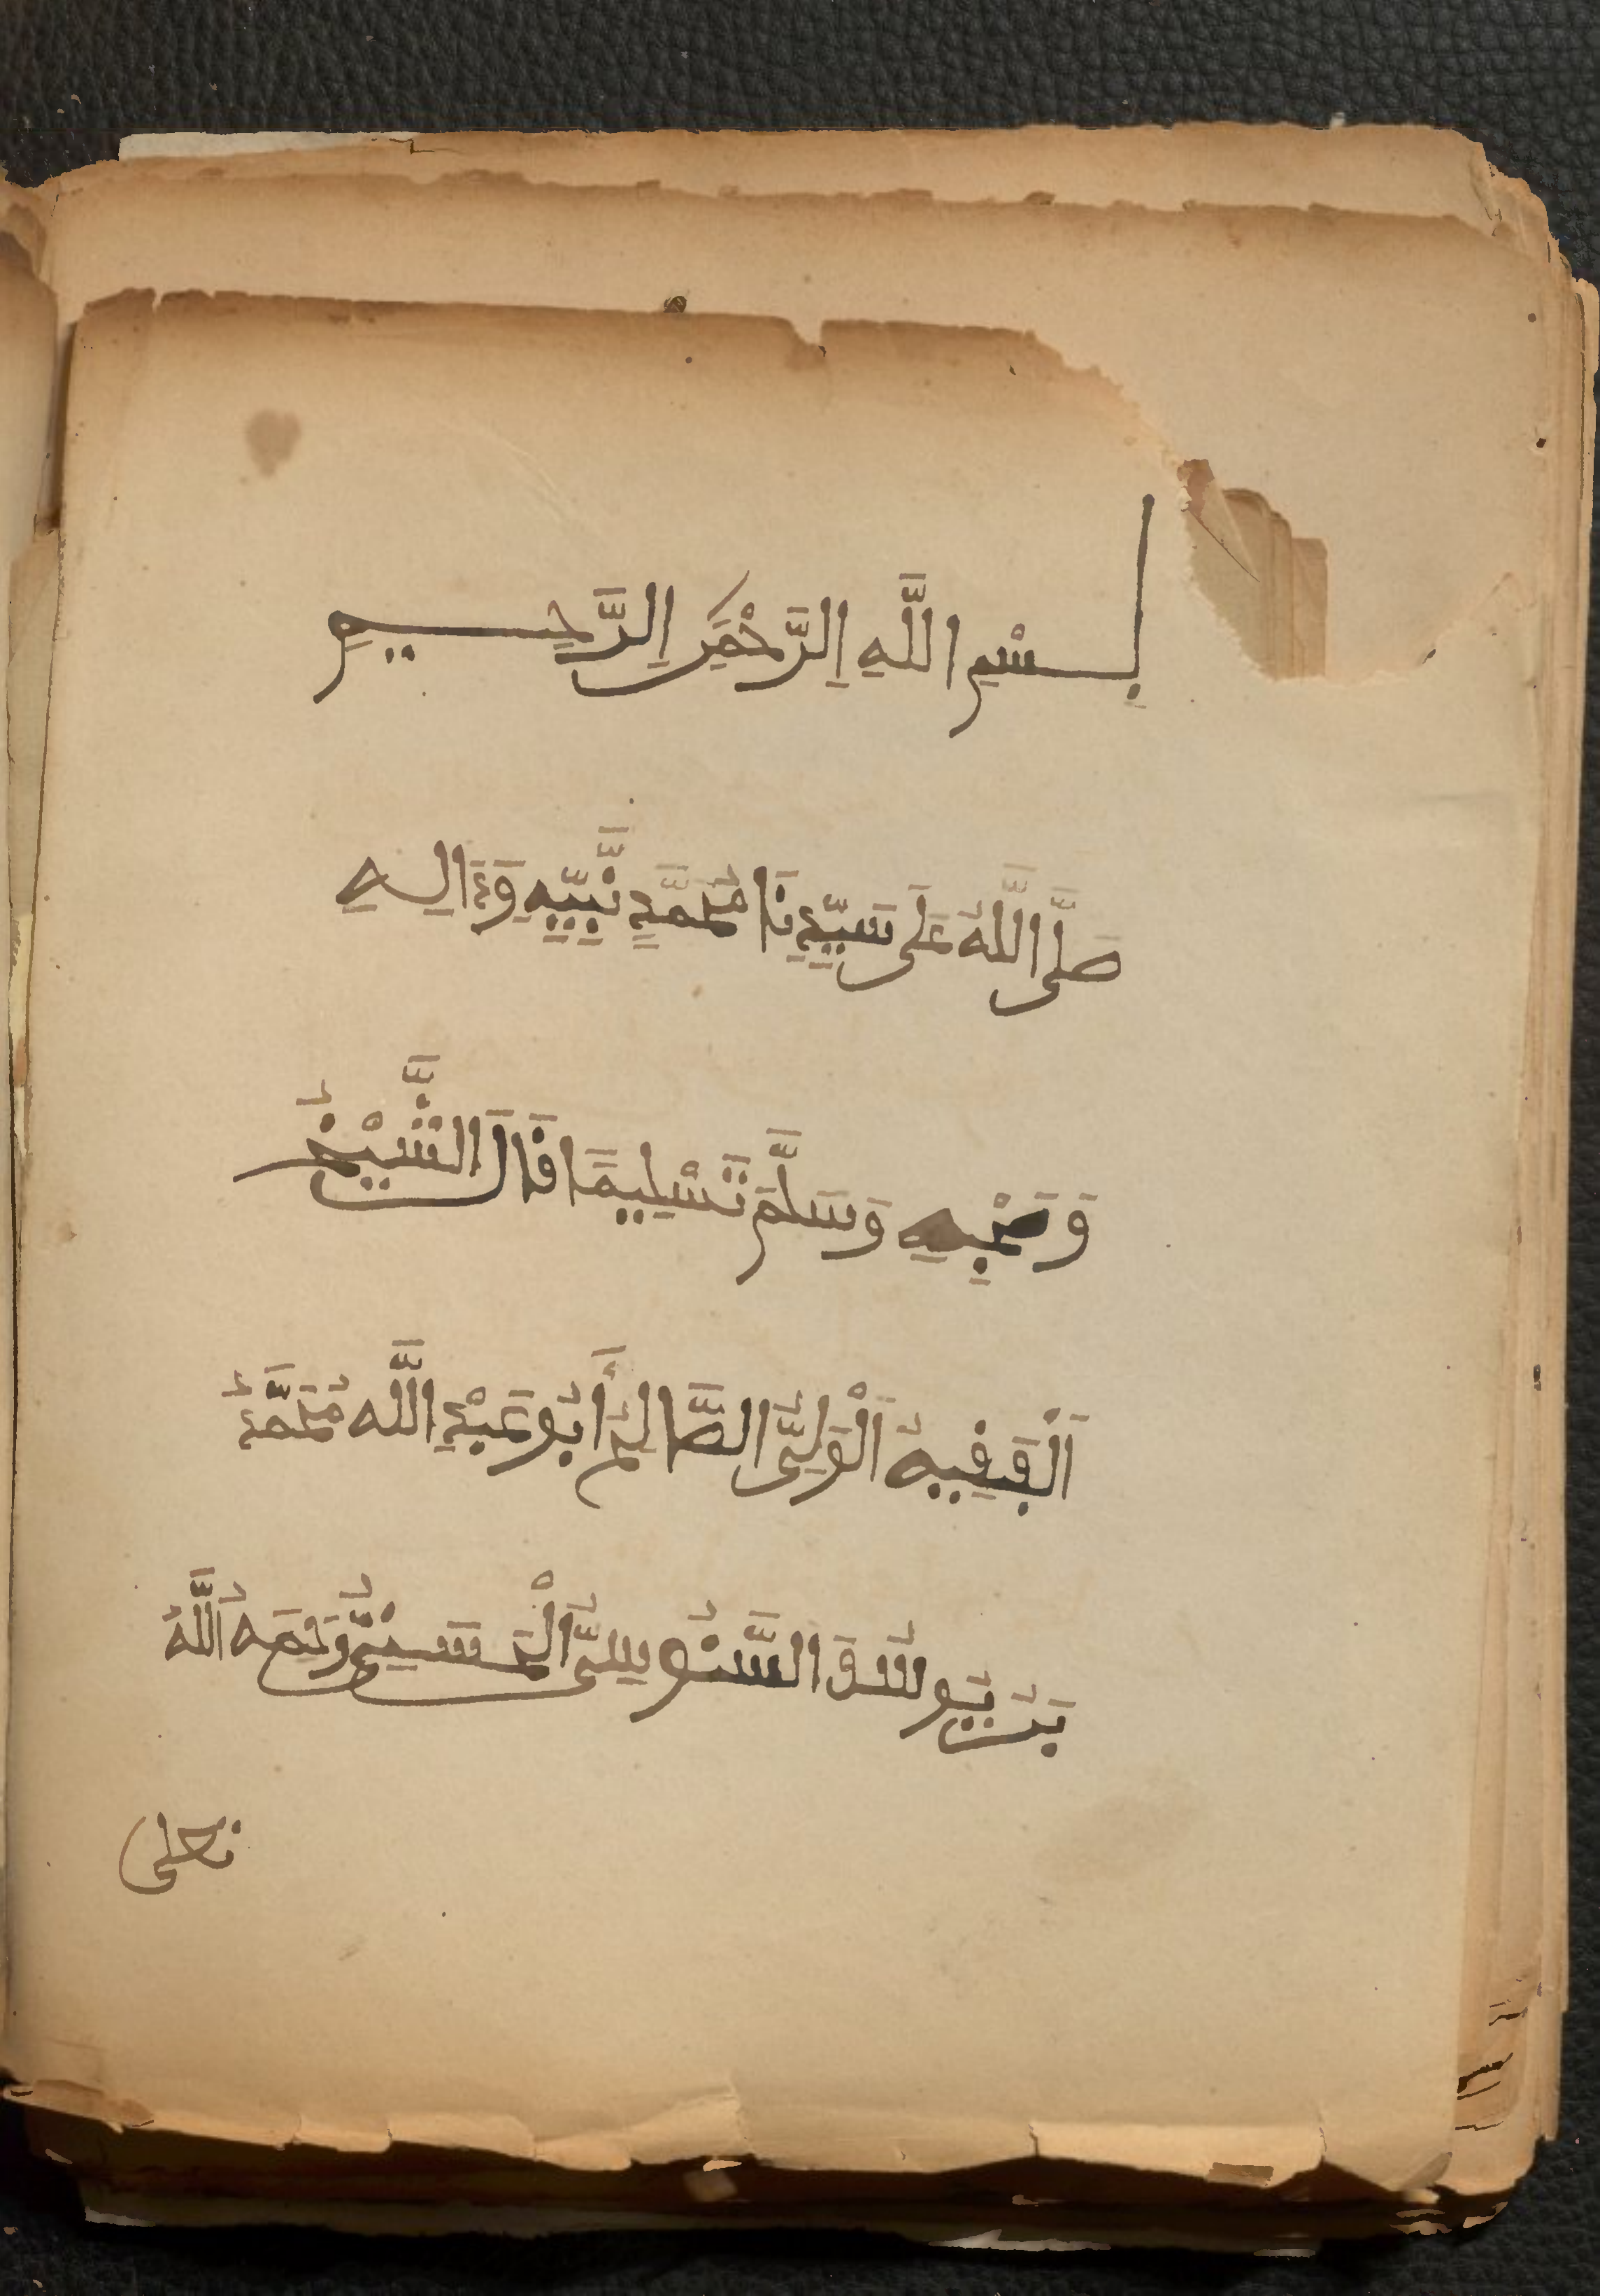 بِسْمِ اللَّهِ اِلرَّحْمَٰنِ اِلرَّحِيمِ
صَلَّى اللَّهُ عَلَى سَيِّدِنَا مُحَمَّدٍ نَّبِيِّهِ وَءَالِهِ
وَصَحْبِهِ وَسَلَّمَ تَسْلِيمًا قَالَ الشَّيْخُ
اَلْفَقِيهُ اَلْوَلِيُّ الصَّالِحُ أَبُو عَبْدِ اللَّه مُحَمَّدُ
بْنُ يُوسُفَ السَّنُوسِيُّ الْحَسَنِيُّ رَحِمَهُ اَللَّهُ